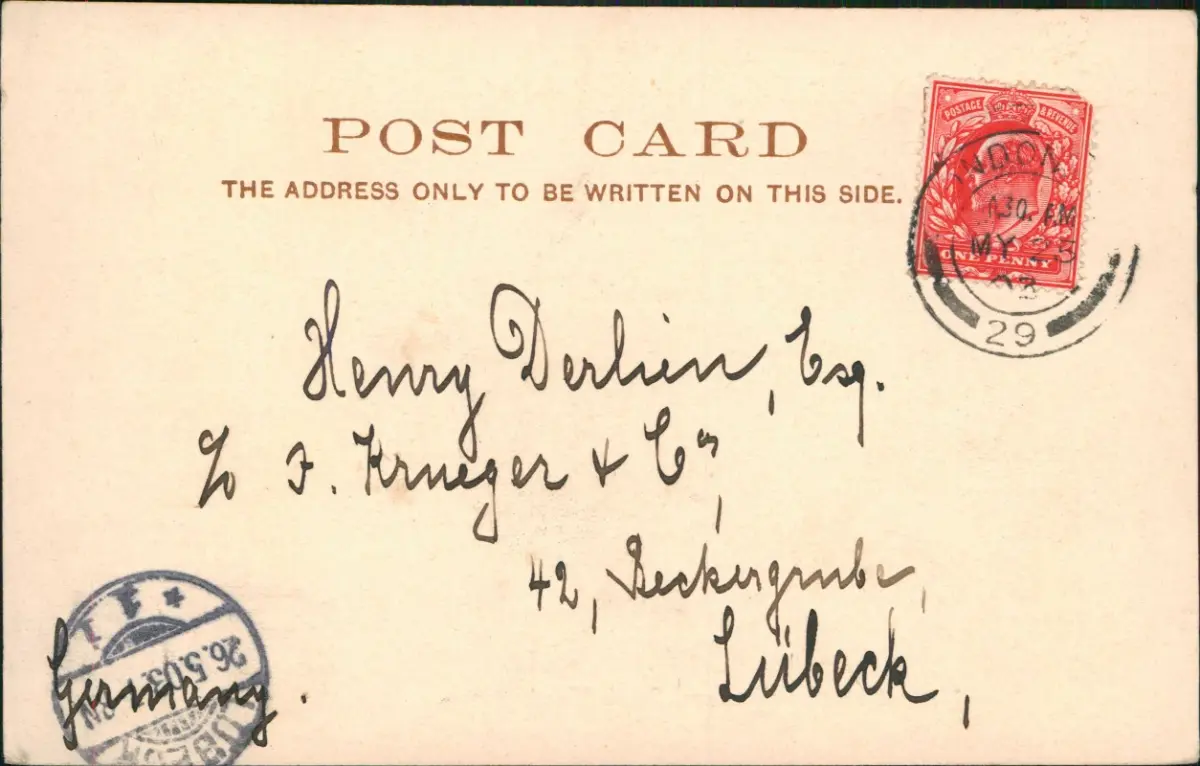 POST CARD
THE ADDRESS ONLY TO BE WRITTEN ON THIS SIDE.
POSTAGE & REVENUE
ONE PENNY
MY 25
03
29
Henry Derlien, Esq.
c/o F. Krueger & Co,
42, Beckergrube,
Lübeck,
Germany.
26.5.03